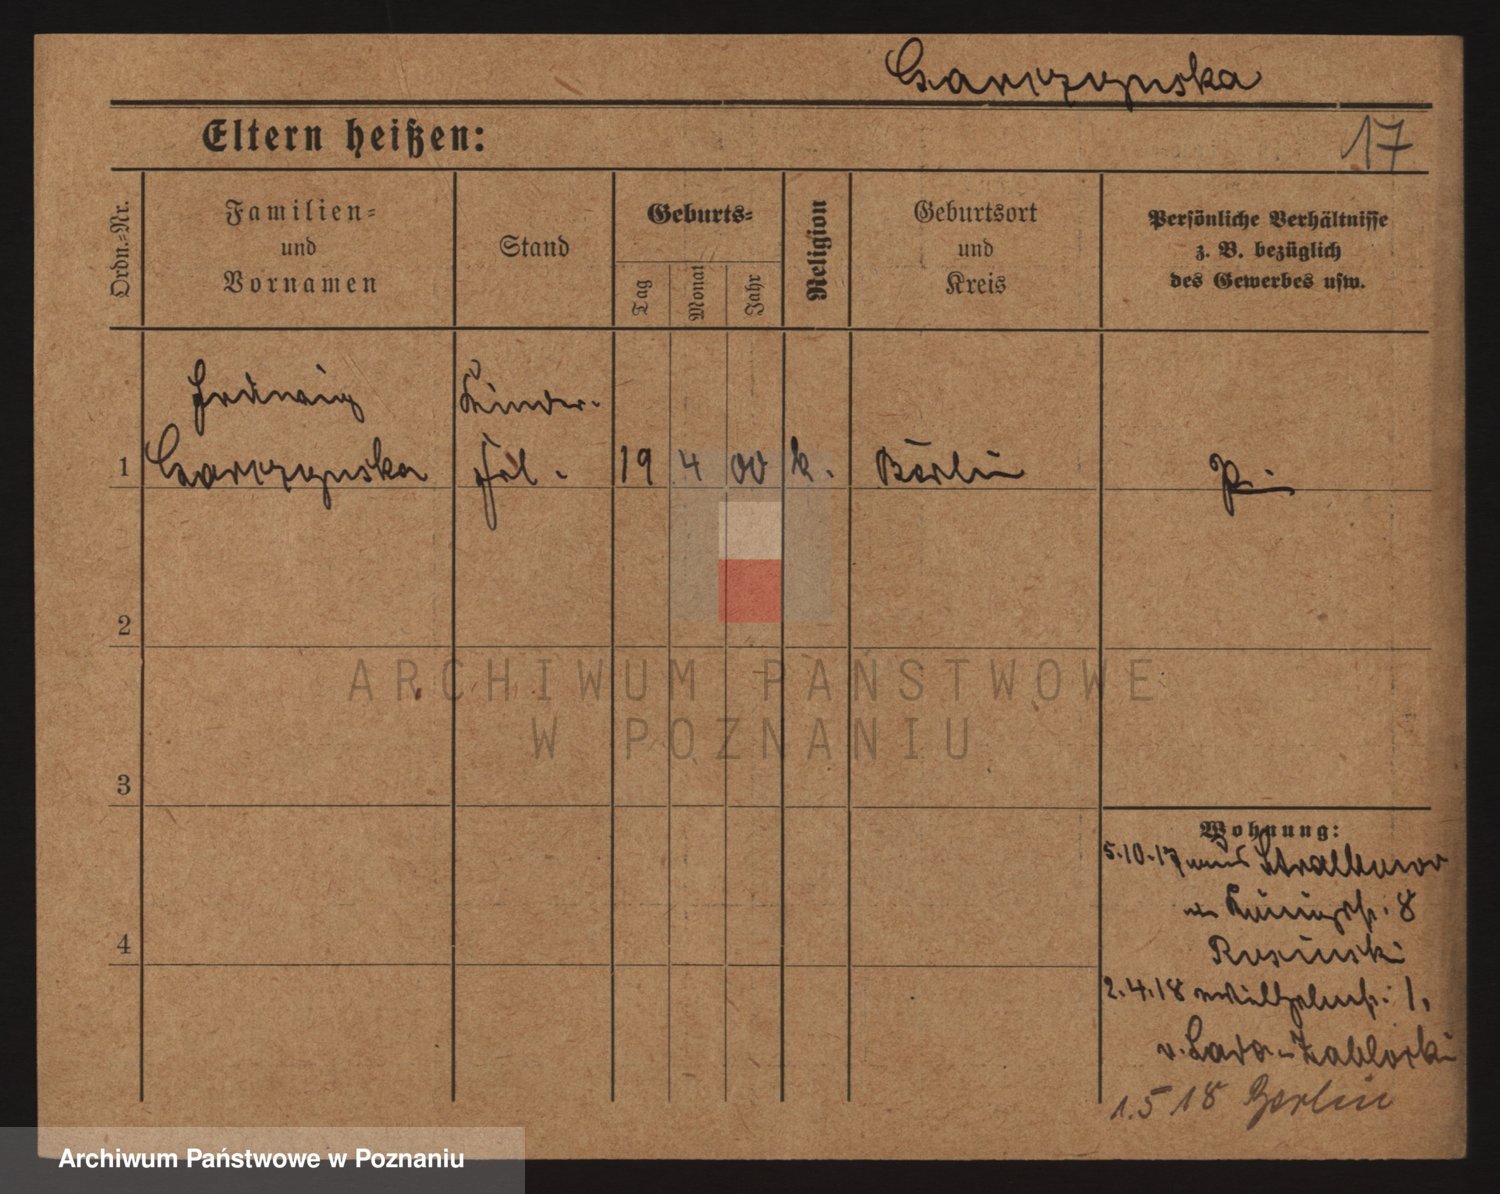 Garczynska
Eltern heißen:
17
Ordn.-Nr.
Familien-
und
Vornamen
Stand
Geburts-
Tag
Monat
Jahr
Religion
Geburtsort
und
Kreis
Persönliche Verhältnisse
z. B. bezüglich
des Gewerbes usw.
Hedwig
Kinder-
1 Garczynska frl. 19 4 00 k. Berlin Pr.
2
ARCHIWUM PAŃSTWOWE
W POZNANIU
3
Wohnung:
5.10.17 aus
8
4
Rosinski
2.4.18 1,
v. Zablocki
1.5 18 Berlin
Archiwum Państwowe w Poznaniu